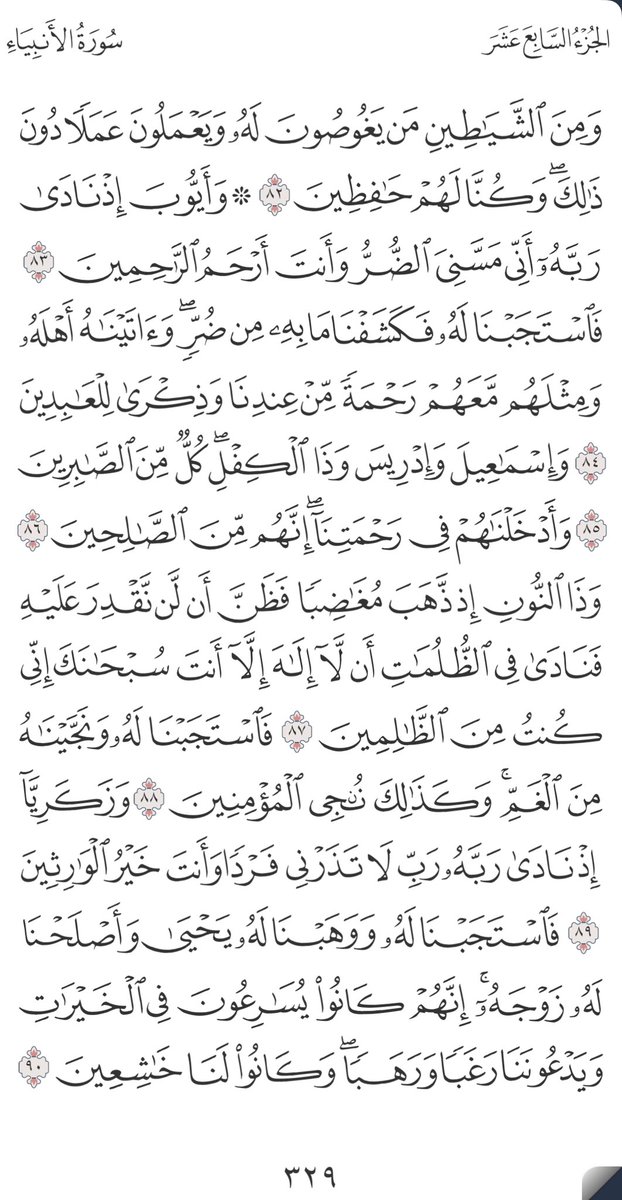 الجُزْءُ السَّابِعَ عَشَرَ سُورَةُ الأَنبِيَاءِ
وَمِنَ ٱلشَّيَـٰطِينِ مَن يَغُوصُونَ لَهُۥ وَيَعْمَلُونَ عَمَلًا دُونَ
ذَٰلِكَۖ وَكُنَّا لَهُمْ حَـٰفِظِينَ ٨٢ ۞ وَأَيُّوبَ إِذْ نَادَىٰ
رَبَّهُۥٓ أَنِّى مَسَّنِىَ ٱلضُّرُّ وَأَنتَ أَرْحَمُ ٱلرَّٰحِمِينَ ٨٣
فَٱسْتَجَبْنَا لَهُۥ فَكَشَفْنَا مَا بِهِۦ مِن ضُرٍّۖ وَءَاتَيْنَـٰهُ أَهْلَهُۥ
وَمِثْلَهُم مَّعَهُمْ رَحْمَةً مِّنْ عِندِنَا وَذِكْرَىٰ لِلْعَـٰبِدِينَ
٨٤ وَإِسْمَـٰعِيلَ وَإِدْرِيسَ وَذَا ٱلْكِفْلِۖ كُلٌّ مِّنَ ٱلصَّـٰبِرِينَ
٨٥ وَأَدْخَلْنَـٰهُمْ فِى رَحْمَتِنَآۖ إِنَّهُم مِّنَ ٱلصَّـٰلِحِينَ ٨٦
وَذَا ٱلنُّونِ إِذ ذَّهَبَ مُغَـٰضِبًا فَظَنَّ أَن لَّن نَّقْدِرَ عَلَيْهِ
فَنَادَىٰ فِى ٱلظُّلُمَـٰتِ أَن لَّآ إِلَـٰهَ إِلَّآ أَنتَ سُبْحَـٰنَكَ إِنِّى
كُنتُ مِنَ ٱلظَّـٰلِمِينَ ٨٧ فَٱسْتَجَبْنَا لَهُۥ وَنَجَّيْنَـٰهُ
مِنَ ٱلْغَمِّۚ وَكَذَٰلِكَ نُـۨجِى ٱلْمُؤْمِنِينَ ٨٨ وَزَكَرِيَّآ
إِذْ نَادَىٰ رَبَّهُۥ رَبِّ لَا تَذَرْنِى فَرْدًا وَأَنتَ خَيْرُ ٱلْوَٰرِثِينَ
٨٩ فَٱسْتَجَبْنَا لَهُۥ وَوَهَبْنَا لَهُۥ يَحْيَىٰ وَأَصْلَحْنَا
لَهُۥ زَوْجَهُۥٓۚ إِنَّهُمْ كَانُوا۟ يُسَـٰرِعُونَ فِى ٱلْخَيْرَٰتِ
وَيَدْعُونَنَا رَغَبًا وَرَهَبًاۖ وَكَانُوا۟ لَنَا خَـٰشِعِينَ ٩٠
٣٢٩